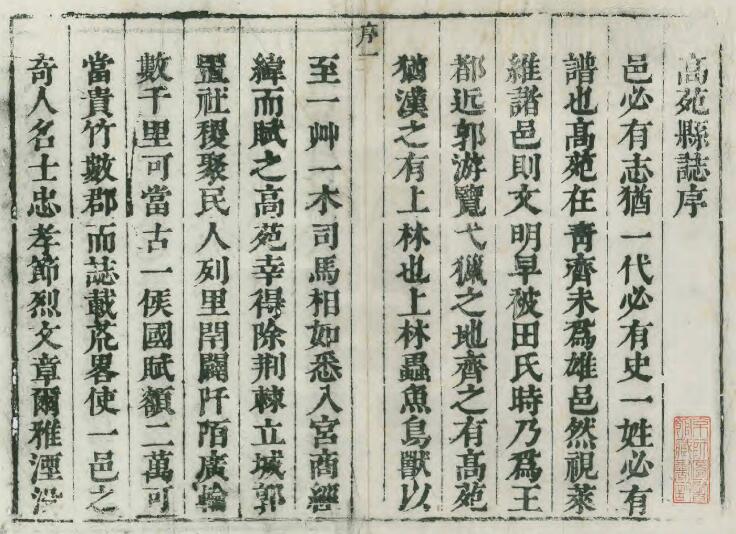 高苑縣誌序
邑必有志猶一代必有史一姓必有
譜也高苑在青齊未爲雄邑然視萊
維諸邑則文明早被田氏時乃爲王
都近郭游覽弋獵之地齊之有高苑
猶漢之有上林也上林蟲魚鳥獸以
序一
至一艸一木司馬相如悉入宮商經
緯而賦之高苑幸得除荆棘立城郭
置社稷聚民人列里閈闢阡陌廣輪
數千里可當古一侯國賦額二萬可
當貴竹數郡而誌載荒畧使一邑之
奇人名士忠孝節烈文章爾雅湮没